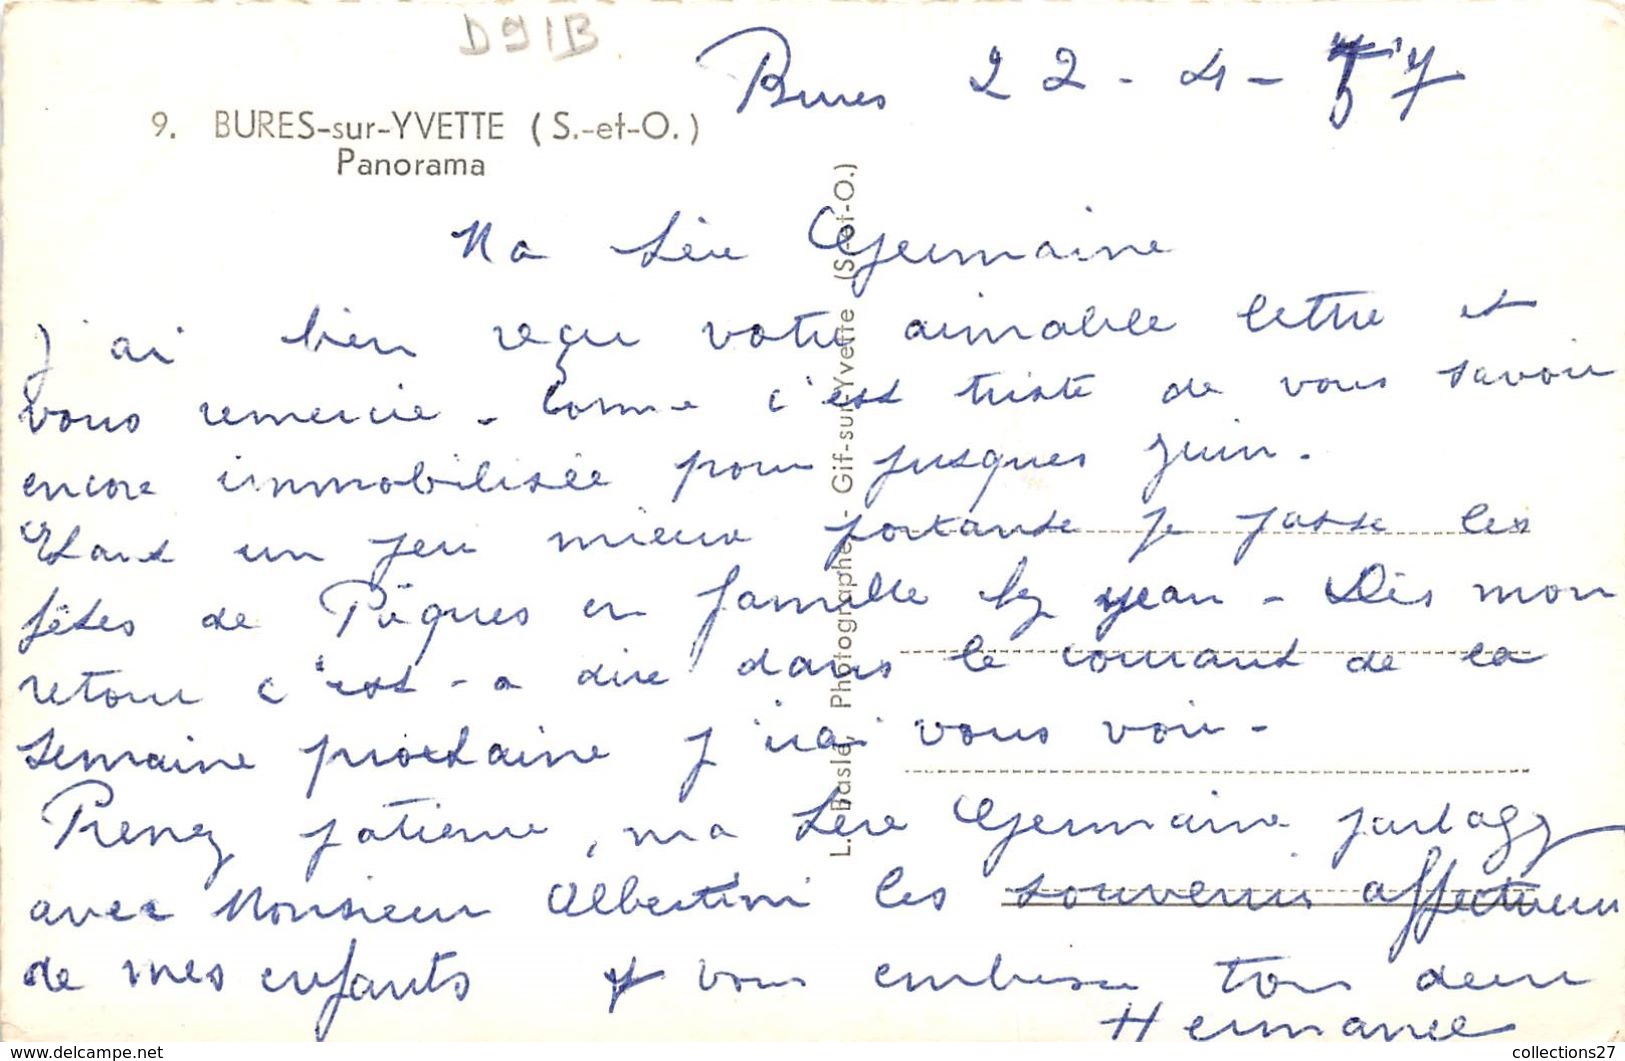 D91B
Bures 22-4-57
9. BURES-sur-YVETTE (S.-et-O.)
Panorama
L. Basle, Photographe - Gif-sur-Yvette (S.-et-O.)
Ma Gère Germaine
J'ai bien reçu votre aimable lettre et
vous remercie - Comme c'est triste de vous savoir
encore immobilisée pour jusques Juin.
Etant un peu mieux portante je passe les
fêtes de Pâques en famille chez Jean - Dès mon
retour c'est-a dire dans le courant de la
semaine prochaine j'irai vous voir -
Prenez patience, ma Gère Germaine partagez
avec Monsieur Albertini les souvenirs affectueux
de mes enfants & vous embrasse tous deux
Hermance
collections27